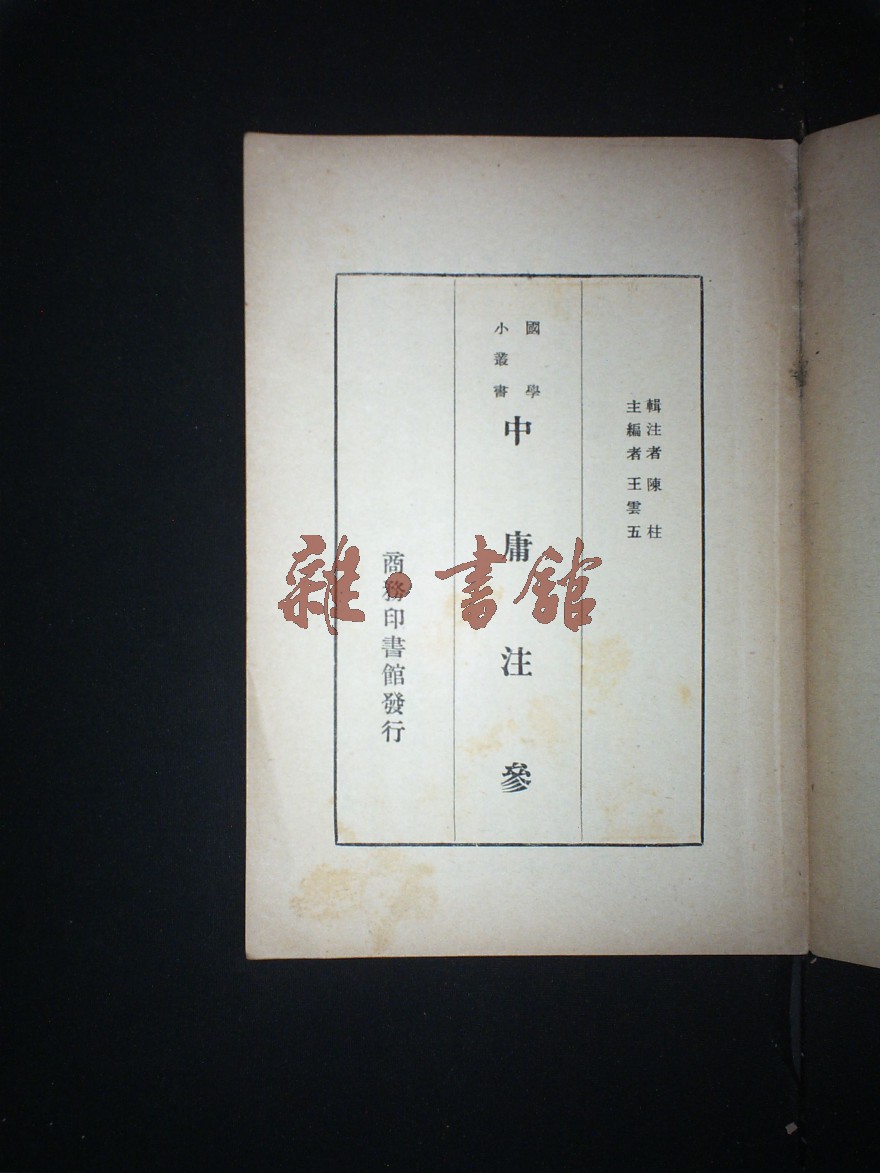 輯注者 陳柱
主編者 王雲五
國學
小叢書
中庸注參
商務印書館發行
雜·書館